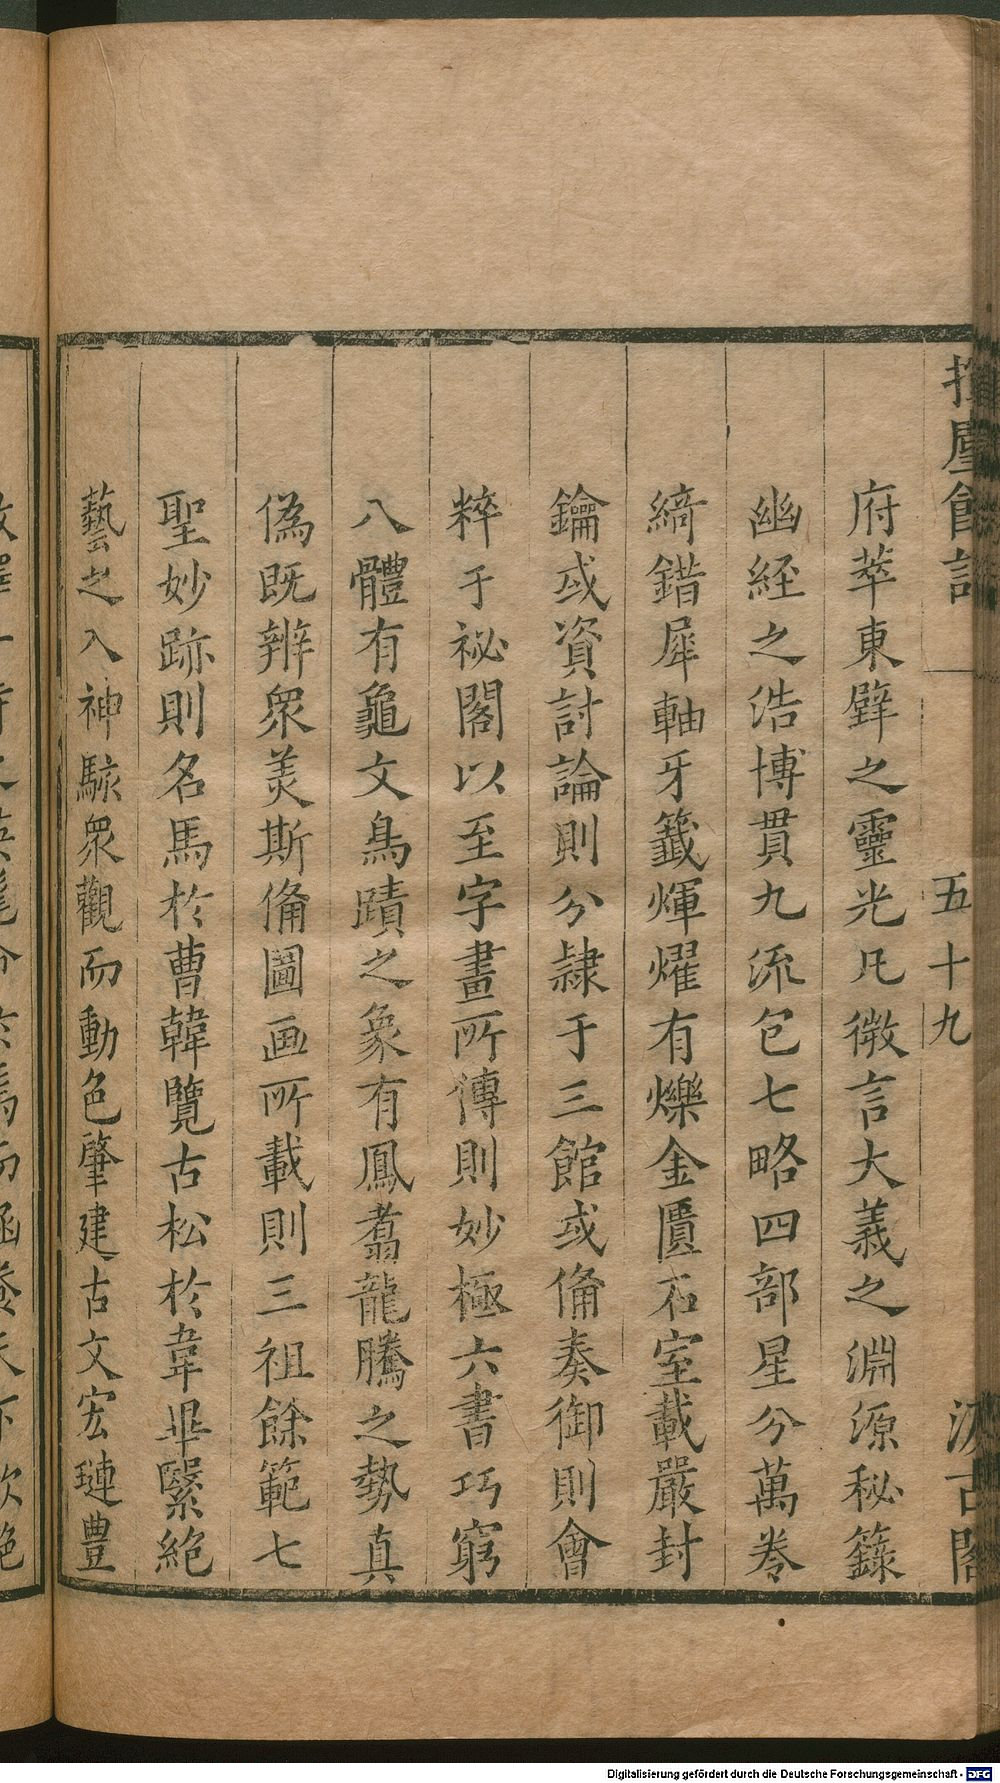 五十九
汲古閣
府萃東壁之靈光凡微言大義之淵源秘籙
幽経之浩博貫九流包七略四部星分萬卷
綺錯犀軸牙籤煇燿有爍金匱石室載嚴封
鑰或資討論則分隷于三館或俻奏御則會
粹于祕閣以至字畫所傳則妙極六書巧窮
八體有龜文鳥蹟之象有鳳翥龍騰之勢真
偽既辨衆美斯俻圖画所載則三祖餘範七
聖妙跡則名馬於曹韓覽古松於韋畢繄絶
藝之入神駭衆觀而動色肇建古文宏璉豊
Digitalisierung gefördert durch die Deutsche Forschungsgemeinschaft - DFG